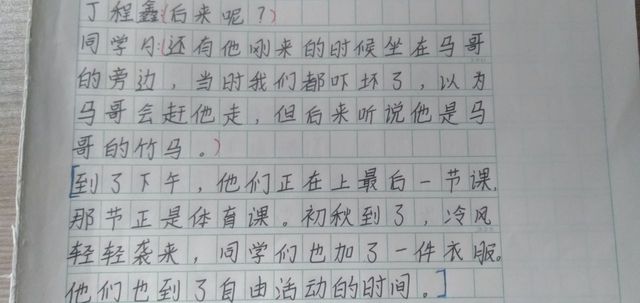 丁程鑫(后来呢？)
同学A:(还有他刚来的时候坐在马哥
的旁边，当时我们都吓坏了，以为
马哥会赶他走，但后来听说他是马
哥的竹马。)
[到了下午，他们正在上最后一节课,
那节正是体育课。初秋到了，冷风
轻轻袭来，同学们也加了一件衣服。
他们也到了自由活动的时间。]